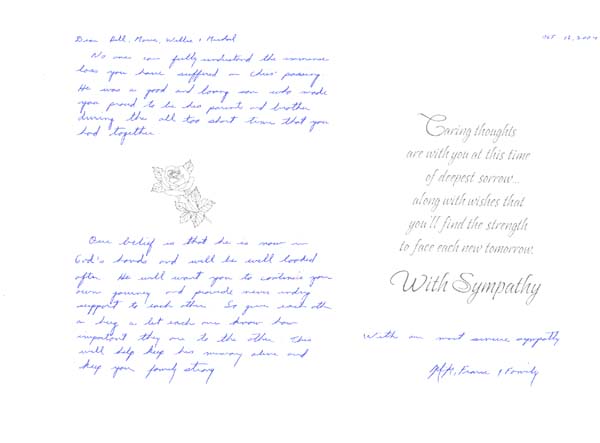 Oct 12, 2004
Dear Bill, Willie &
No one can fully understand the immense
loss you have suffered in Chris' passing.
He was a good and loving son who made
you proud to be his parents and brother
during the all too short time that you
had together
Our belief is that he is now in
God's hands and will be well looked
after. He will want you to continue your
own journey and provide never ending
support to each other. So give each other
a hug & let each one know how
important they are to the other. This
will help keep his memory alive and
keep your family strong
Caring thoughts
are with you at this time
of deepest sorrow...
along with wishes that
you'll find the strength
to face each new tomorrow.
With Sympathy
With our most sincere sympathy
& Family